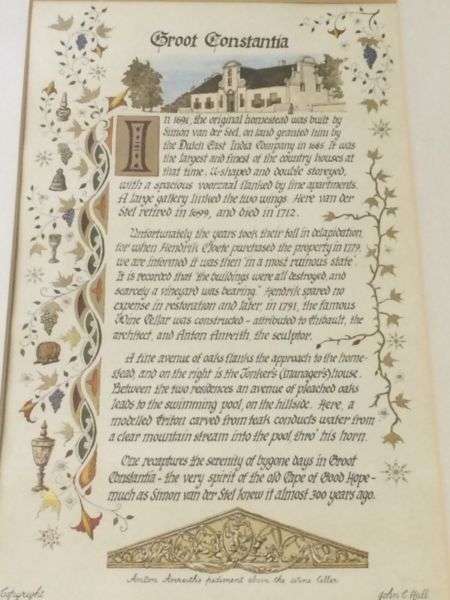 Groot Constantia
In 1691, the original homestead was built by
Simon van der Stel, on land granted him by
the Dutch East India Company in 1685. It was
the largest and finest of the country houses at
that time. U-shaped and double storeyed,
with a spacious voorzaal flanked by fine apartments.
A large gallery linked the two wings. Here van der
Stel retired in 1699, and died in 1712.
Unfortunately the years took their toll in delapidation,
for when Hendrik Cloete purchased the property in 1779,
we are informed it was then "in a most ruinous state".
It is recorded that "the buildings were all destroyed, and
scarcely a vineyard was bearing." Hendrik spared no
expense in restoration and later, in 1791, the famous
Wine Cellar was constructed – attributed to Thibault, the
architect, and Anton Anreith, the sculptor.
A fine avenue of oaks flanks the approach to the home-
stead, and on the right is the Jonkers (managers) house.
Between the two residences an avenue of pleached oaks
leads to the swimming pool, on the hillside. Here, a
modelled triton carved from teak conducts water from
a clear mountain stream into the pool, thro' his horn.
One recaptures the serenity of bygone days in Groot
Constantia – the very spirit of the old Cape of Good Hope –
much as Simon van der Stel knew it almost 300 years ago.
Anton Anreith's pediment above the Wine Cellar
Copyright
John C Hall